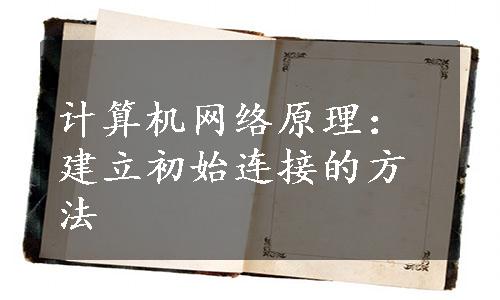 计算机网络原理：
建立初始连接的方
法